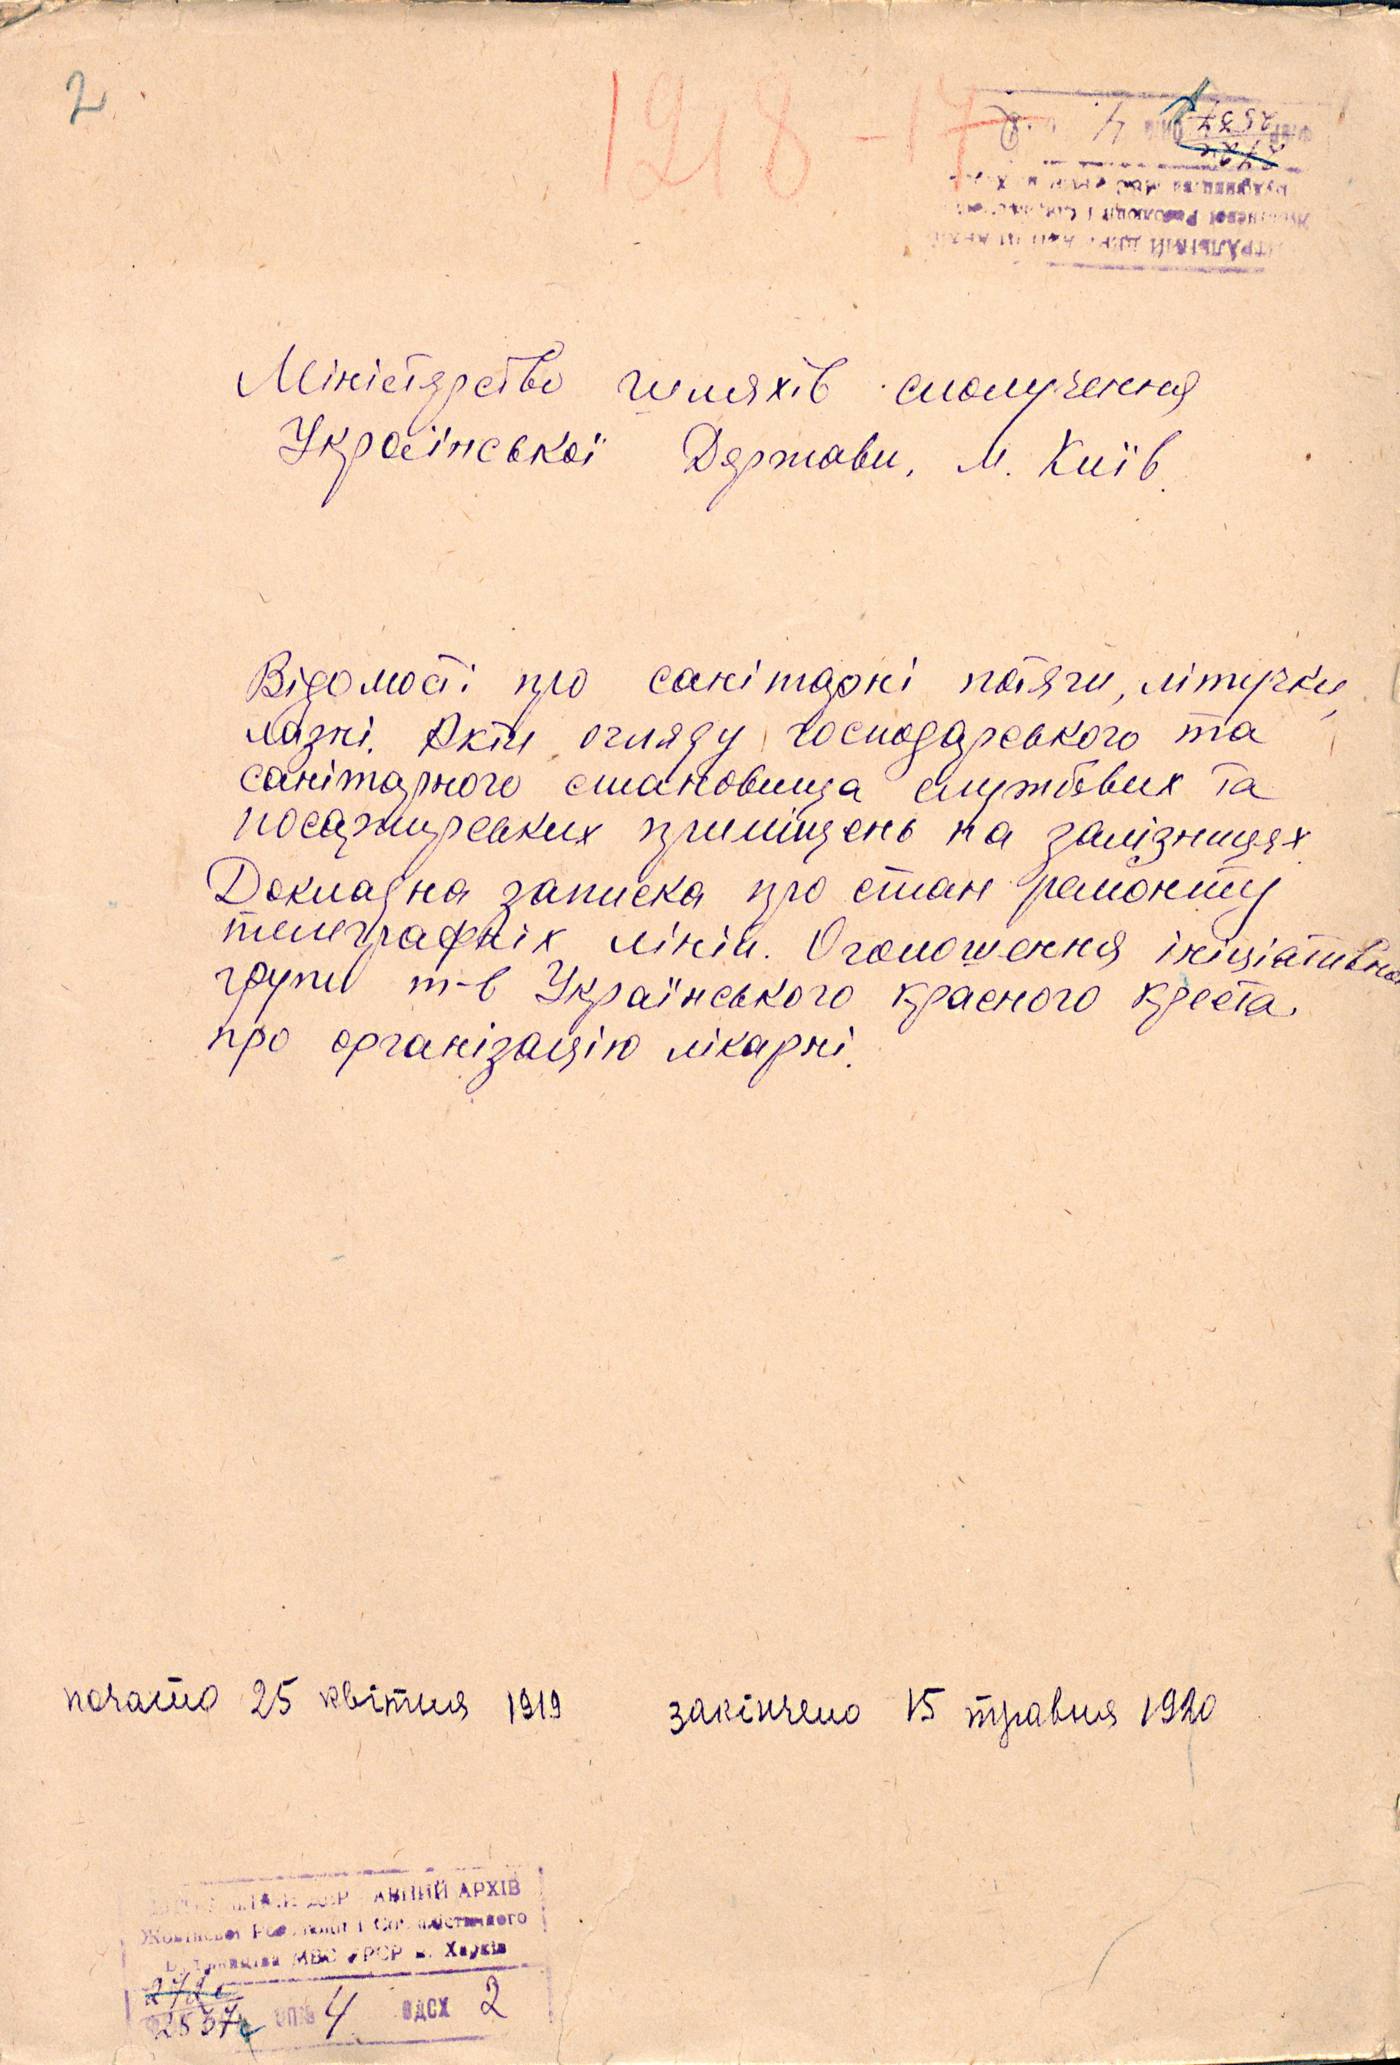 2
1218-17
Міністерство шляхів сполучення
Української Держави, м. Київ.
Відомості про санітарні потяги, літучки,
лазні. Акти огляду господарського та
санітарного становища службових та
посажирських приміщень на залізницях.
Докладна записка про стан ремонту
телеграфніх ліній. Оголошення ініціативної
групи т-в Українського красного креста
про організацію лікарні.
почато 25 квітня 1919 закінчено 15 травня 1920
АРХІВ
Жовтневої Революції і Соціалістичного
Будівництва МВС УРСР м. Харків
272с
2537с ОПИС 4 ОДСХ 2